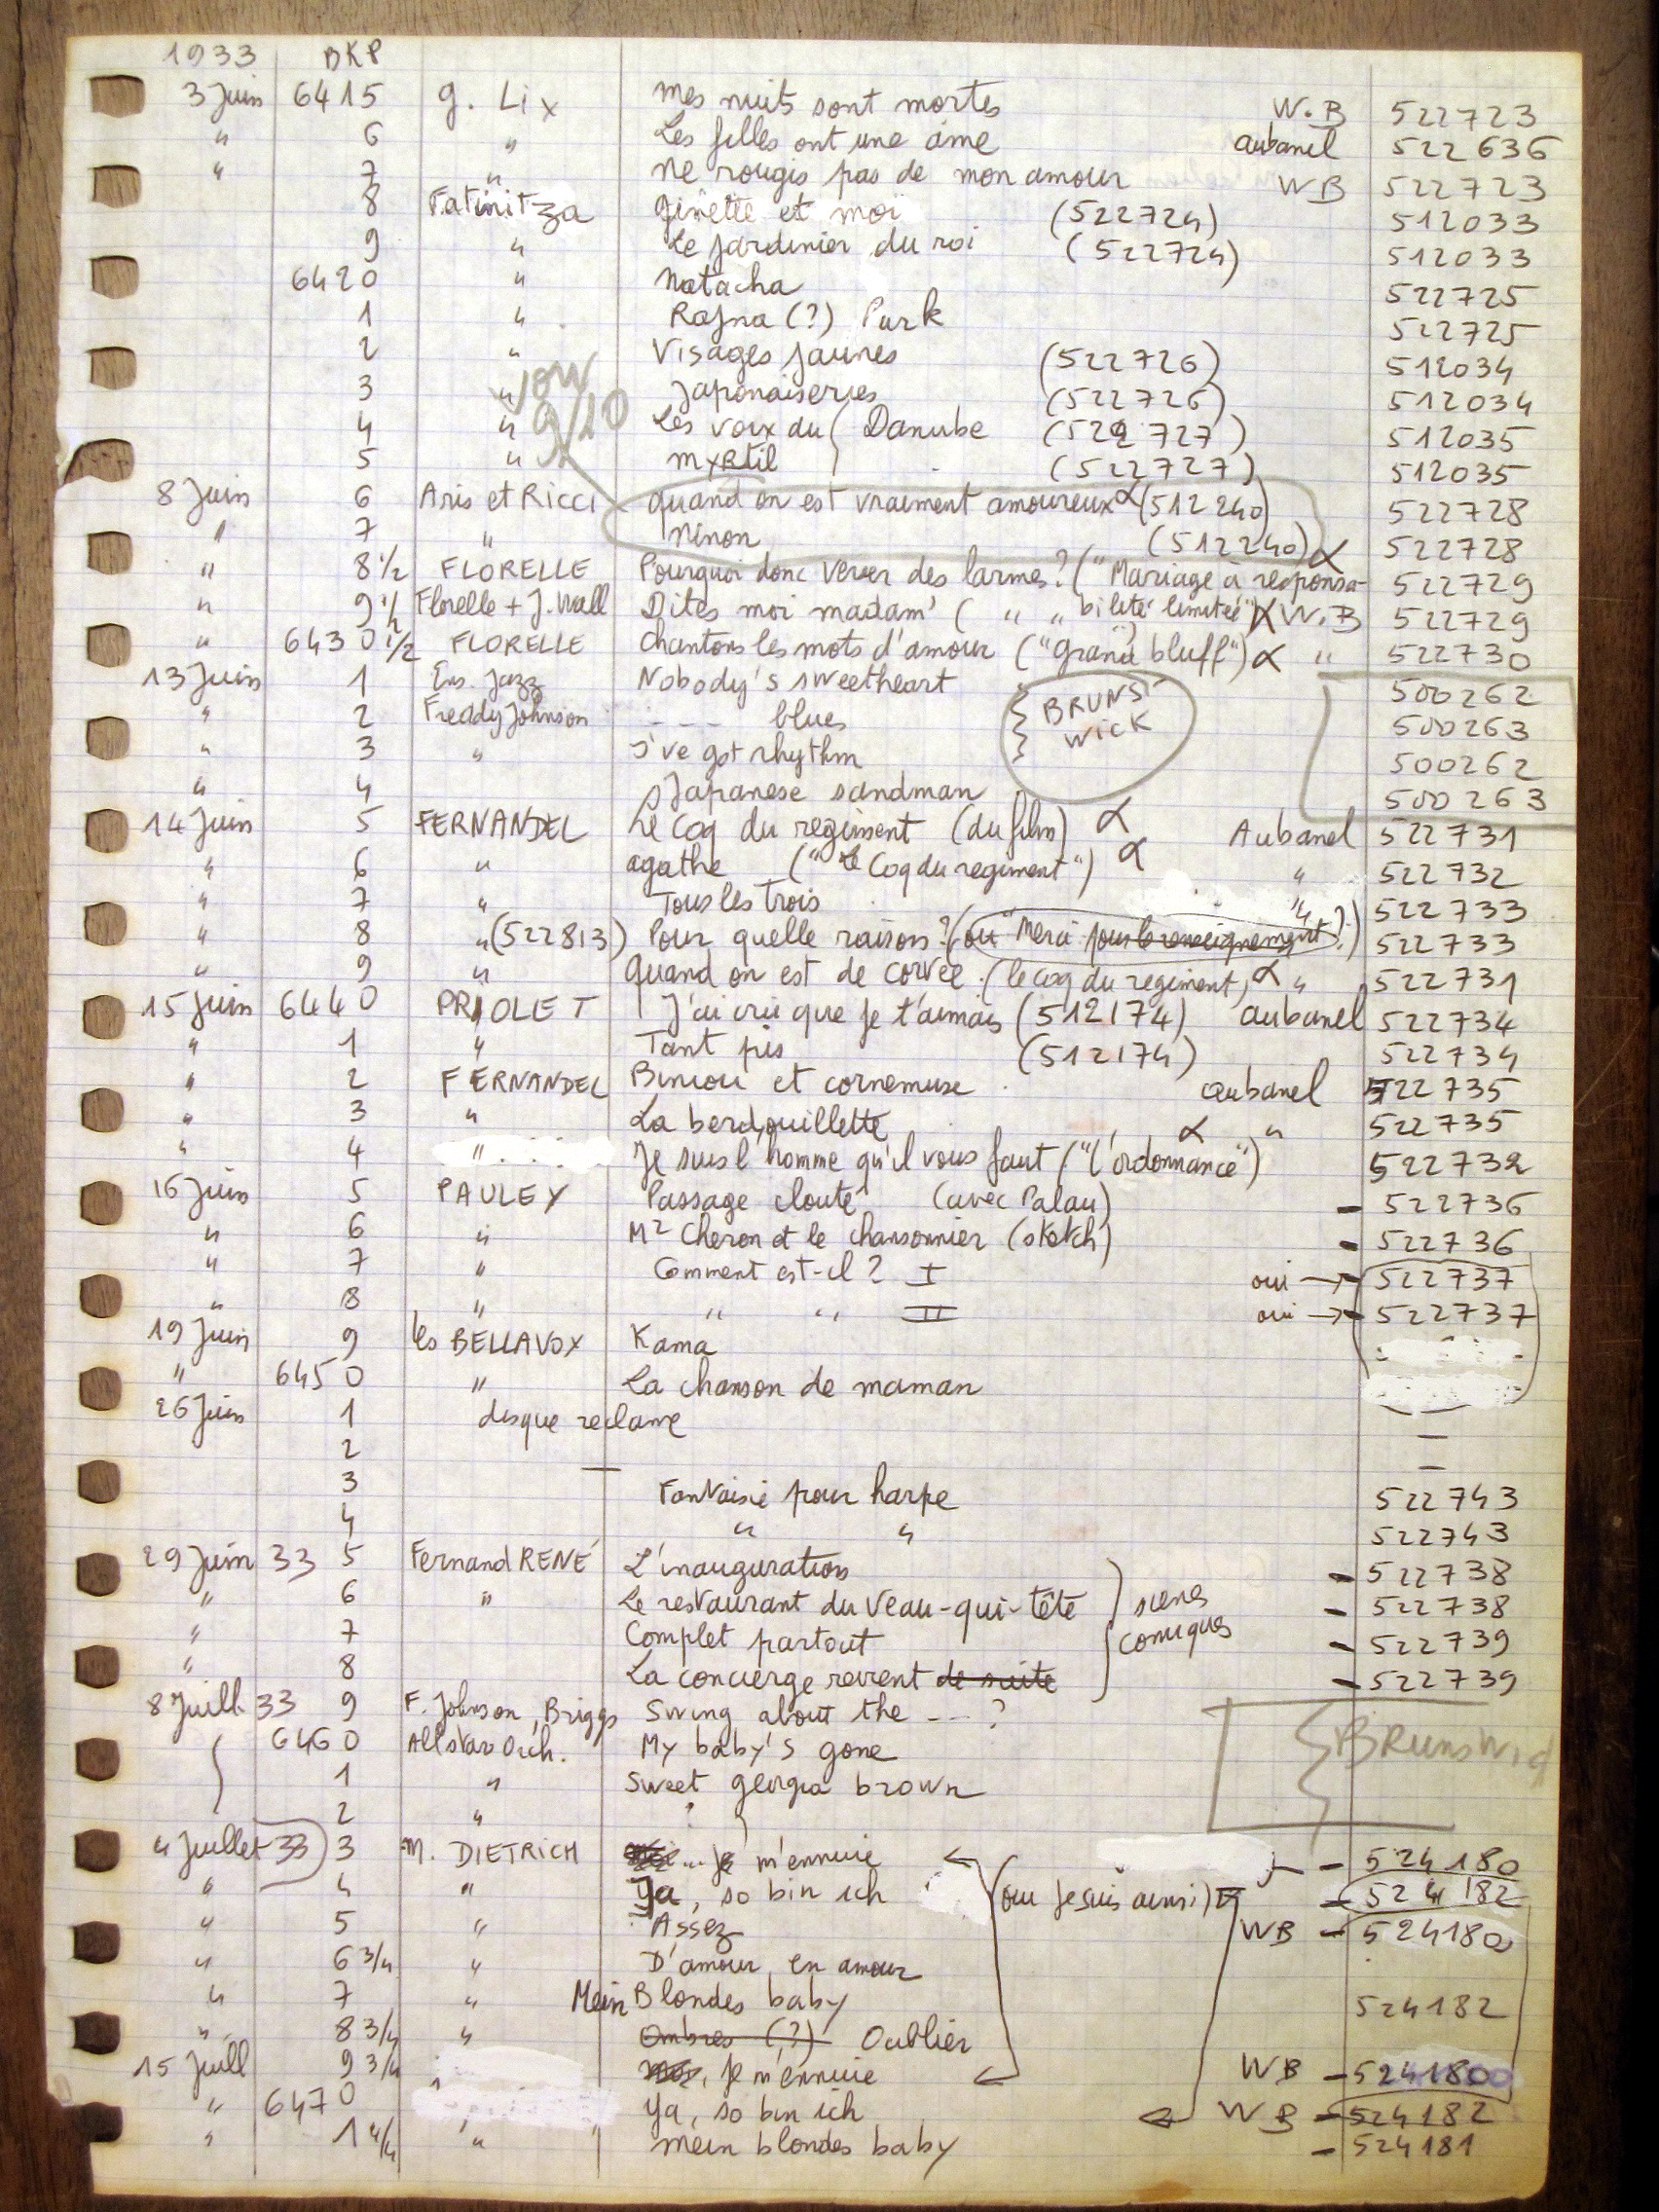 1933 BKP
3 Juin 6415 G. Lix Mes nuits sont mortes W.B 522723
" 6 " Les filles ont une âme aubanel 522636
" 7 " Ne rougis pas de mon amour WB 522723
8 Fatinitza Ginette et moi (522724) 512033
9 " Le jardinier du roi (522724) 512033
6420 " Natacha 522725
1 " Rajna (?) Park 522725
2 " Visages jaunes (522726) 512034
3 " Japonaiseries (522726) 512034
4 " Les voix du Danube (522727) 512035
5 " Myrtil (522727) 512035
9/10
8 Juin 6 Aris et Ricci Quand on est vraiment amoureux α (512240) 522728
" 7 " Ninon (512240) α 522728
" 8 1/2 FLORELLE Pourquoi donc verser des larmes? ("Mariage à responsa- 522729
" 9 1/2 Florelle + J. Wall Dites moi madam' ( " " bilité limitée") α W.B 522729
" 6430 1/2 FLORELLE Chantons les mots d'amour ("Grand bluff") α " 522730
13 Juin 1 Ens. Jazz Nobody's sweetheart BRUNS- 500262
" 2 Freddy Johnson ---- blues WICK 500263
" 3 " I've got rhythm 500262
" 4 Japanese sandman 500263
14 Juin 5 FERNANDEL Le Coq du regiment (du film) α Aubanel 522731
" 6 " Agathe ("Le Coq du regiment") α " 522732
" 7 " Tous les trois " 522733
" 8 " (522813) Pour quelle raison? (ou "Merci pour le renseignement"?) 522733
" 9 " Quand on est de corvée (le coq du regiment) α " 522731
15 Juin 6440 PRIOLET J'ai cru que je t'aimais (512174) aubanel 522734
" 1 " Tant pis (512174) 522734
" 2 FERNANDEL Biniou et cornemuse aubanel 522735
" 3 " La berdouillette α " 522735
" 4 " Je suis l'homme qu'il vous faut ("l'ordonnance") 522732
16 Juin 5 PAULEY Passage clouté (avec Palau) - 522736
" 6 " Mr Cheron et le chansonnier (sketch) - 522736
" 7 " Comment est-il? I oui → 522737
" 8 " " " II oui → 522737
19 Juin 9 les BELLAVOX Kama
" 6450 " La chanson de maman
26 Juin 1 disque reclame —
2 —
3 — Fantaisie pour harpe 522743
4 " " 522743
29 Juin 33 5 Fernand RENÉ L'inauguration - 522738
" 6 " Le restaurant du Veau-qui-tête scènes - 522738
" 7 Complet partout comiques - 522739
" 8 La concierge revient de suite - 522739
8 Juill. 33 9 F. Johnson, Briggs Swing about the --- ?
6460 All star Orch. My baby's gone Brunswick
1 " Sweet georgia brown
2 " ?
4 Juillet 33 3 M. DIETRICH ... Je m'ennuie - 524180
" 4 " Ja, so bin ich (ou Je suis ainsi) - 524182
" 5 " Assez WB - 524180
" 6 3/4 " D'amour en amour
" 7 " Mein Blondes baby 524182
" 8 3/4 " Ombres (?) Oublier
15 Juill 9 3/4 Je m'ennuie WB - 524180
" 6470 Ya, so bin ich WB - 524182
" 1 4/4 " Mein blondes baby - 524181